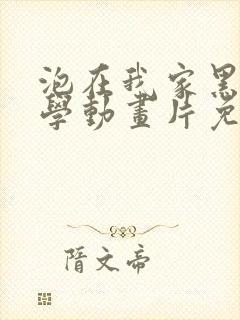 泡在我家黑
學動畫片免
隋文帝